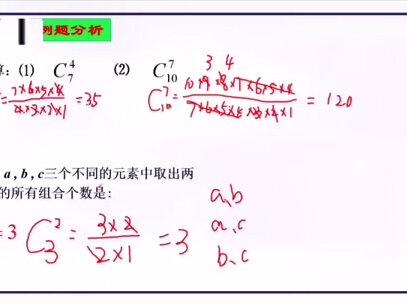 例题分析
算: (1) C₇⁴ (2) C₁₀⁷
= 7×6×5×4 / 4×3×2×1 = 35
3 4
C₁₀⁷ = 10×9×8×7×6×5×4 / 7×6×5×4×3×2×1 = 120
a, b, c三个不同的元素中取出两
的所有组合个数是:
= 3 C₃² = 3×2 / 2×1 = 3
a,b
a,c
b、c